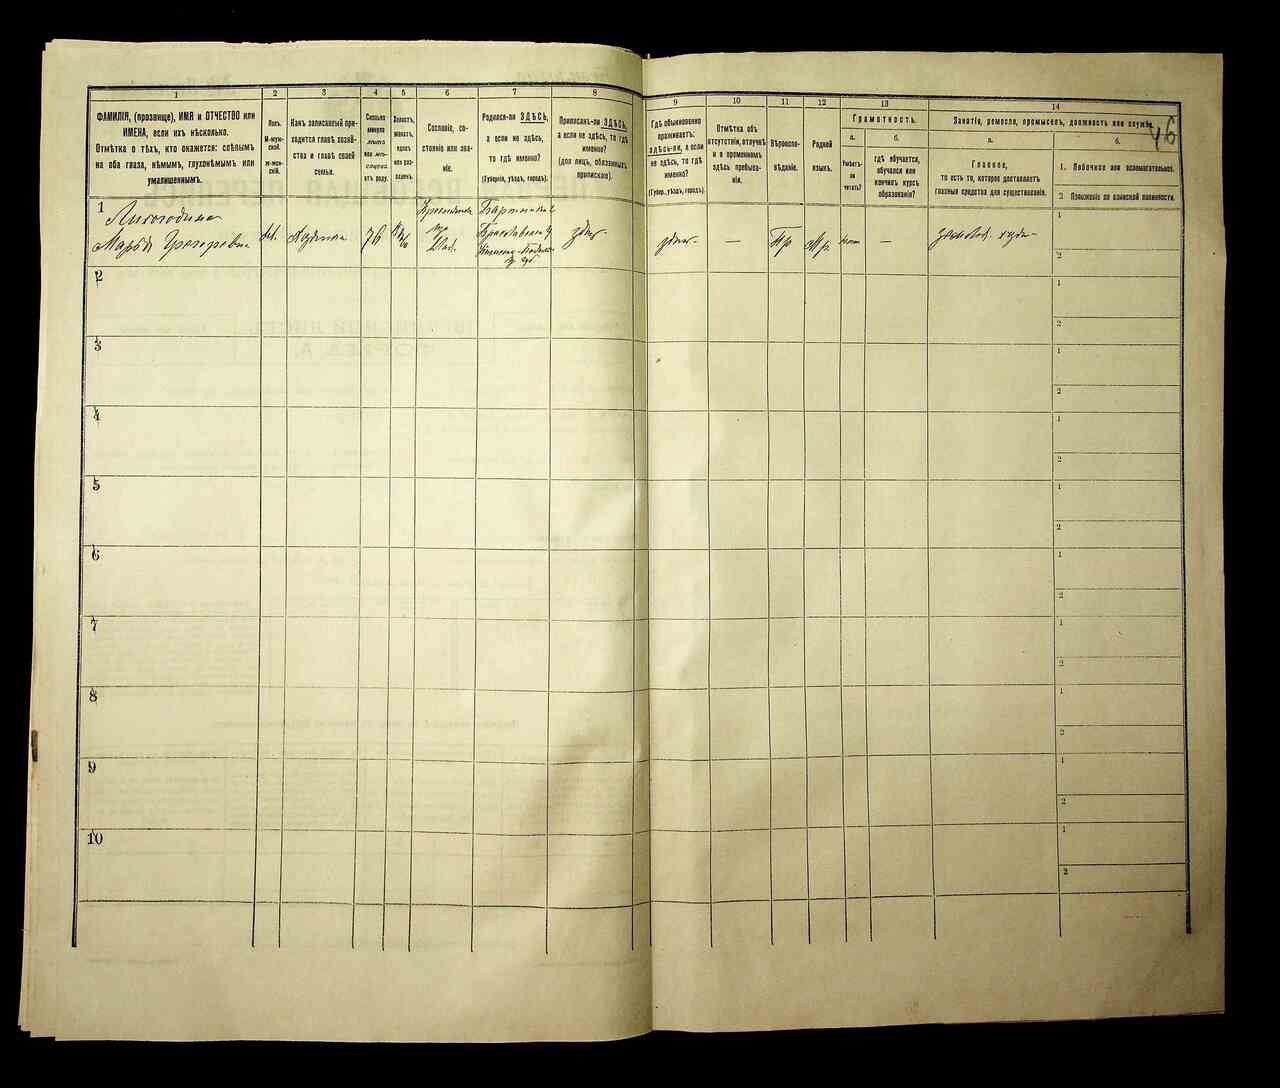 46
1
ФАМИЛІЯ, (прозвище), ИМЯ и ОТЧЕСТВО или
ИМЕНА, если ихъ нѣсколько.
Отмѣтка о тѣхъ, кто окажется: слѣпымъ
на оба глаза, нѣмымъ, глухонѣмымъ или
умалишеннымъ.
2
Полъ.
М-муж-
ской.
Ж-жен-
скій.
3
Какъ записанный при-
ходится главѣ хозяй-
ства и главѣ своей
семьи.
4
Сколько
минуло
лѣтъ
или мѣ-
сяцевъ
отъ роду.
5
Холостъ,
женатъ,
вдовъ
или раз-
веденъ.
6
Сословіе, со-
стояніе или зва-
ніе.
7
Родился-ли ЗДѢСЬ,
а если не здѣсь,
то гдѣ именно?
(Губернія, уѣздъ, городъ).
8
Приписанъ-ли ЗДѢСЬ,
а если не здѣсь, то гдѣ
именно?
(для лицъ, обязанныхъ
припискою).
9
Гдѣ обыкновенно
проживаетъ:
здѣсь-ли, а если
не здѣсь, то гдѣ
именно?
(Губер., уѣздъ, городъ).
10
Отмѣтка объ
отсутствіи, отлучкѣ
и о временномъ
здѣсь пребыва-
ніи.
11
Вѣроиспо-
вѣданіе.
12
Родной
языкъ.
13
Грамотность.
а.
Умѣетъ-
ли
читать?
б.
гдѣ обучается,
обучался или
кончилъ курсъ
образованія?
14
Занятіе, ремесло, промыселъ, должность или служба.
а.
Главное,
то есть то, которое доставляетъ
главныя средства для существованія.
б.
1. Побочное или вспомогательное.
2 Положеніе по воинской повинности.
1
Марья Григорьевна
76
Пр
1
2
2
1
2
3
1
2
4
1
2
5
1
2
6
1
2
7
1
2
8
1
2
9
1
2
10
1
2